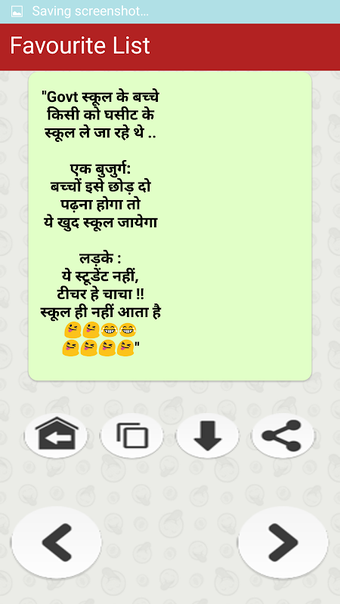 Saving screenshot...
Favourite List
"Govt स्कूल के बच्चे
किसी को घसीट के
स्कूल ले जा रहे थे ..
एक बुजुर्ग:
बच्चों इसे छोड़ दो
पढ़ना होगा तो
ये खुद स्कूल जायेगा
लड़के :
ये स्टूडेंट नहीं,
टीचर हे चाचा !!
स्कूल ही नहीं आता है
😜😜😂😂
😝😝😝😝"